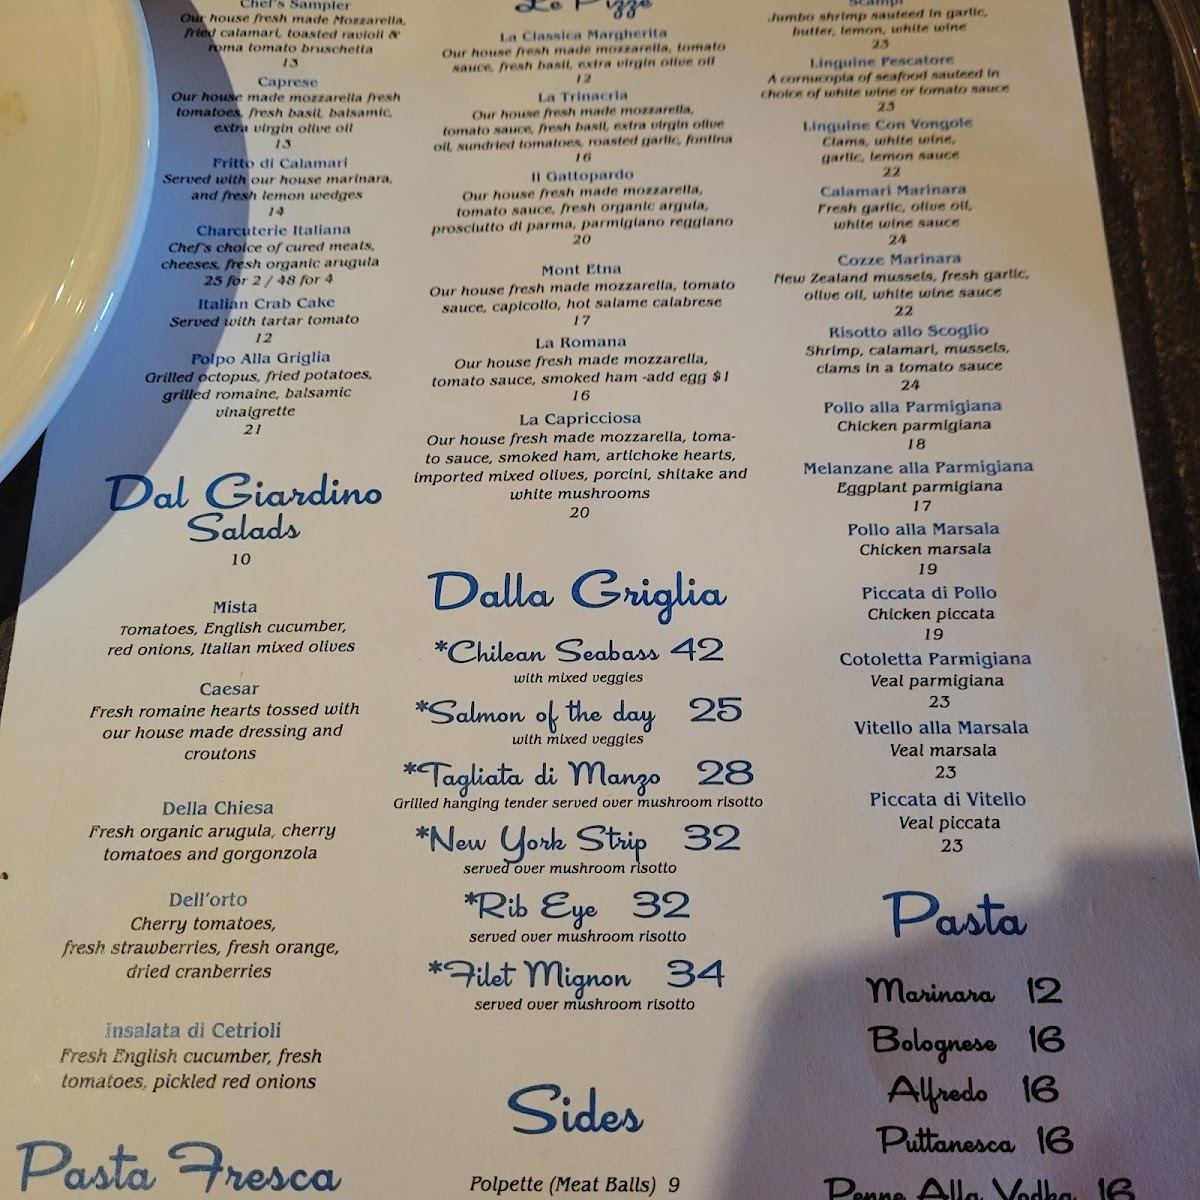 Chef's Sampler
Our house fresh made Mozzarella,
fried calamari, toasted ravioli &
roma tomato bruschetta
13
Caprese
Our house made mozzarella fresh
tomatoes, fresh basil, balsamic,
extra virgin olive oil
13
Fritto di Calamari
Served with our house marinara,
and fresh lemon wedges
14
Charcuterie Italiana
Chef's choice of cured meats,
cheeses, fresh organic arugula
25 for 2 / 48 for 4
Italian Crab Cake
Served with tartar tomato
12
Polpo Alla Griglia
Grilled octopus, fried potatoes,
grilled romaine, balsamic
vinaigrette
21
Dal Giardino
Salads
10
Mista
Tomatoes, English cucumber,
red onions, Italian mixed olives
Caesar
Fresh romaine hearts tossed with
our house made dressing and
croutons
Della Chiesa
Fresh organic arugula, cherry
tomatoes and gorgonzola
Dell'orto
Cherry tomatoes,
fresh strawberries, fresh orange,
dried cranberries
Insalata di Cetrioli
Fresh English cucumber, fresh
tomatoes, pickled red onions
Pasta Fresca
Le Pizze
La Classica Margherita
Our house fresh made mozzarella, tomato
sauce, fresh basil, extra virgin olive oil
12
La Trinacria
Our house fresh made mozzarella,
tomato sauce, fresh basil, extra virgin olive
oil, sundried tomatoes, roasted garlic, fontina
16
Il Gattopardo
Our house fresh made mozzarella,
tomato sauce, fresh organic argula,
prosciutto di parma, parmigiano reggiano
20
Mont Etna
Our house fresh made mozzarella, tomato
sauce, capicollo, hot salame calabrese
17
La Romana
Our house fresh made mozzarella,
tomato sauce, smoked ham -add egg $1
16
La Capricciosa
Our house fresh made mozzarella, toma-
to sauce, smoked ham, artichoke hearts,
imported mixed olives, porcini, shitake and
white mushrooms
20
Dalla Griglia
*Chilean Seabass 42
with mixed veggies
*Salmon of the day 25
with mixed veggies
*Tagliata di Manzo 28
Grilled hanging tender served over mushroom risotto
*New York Strip 32
served over mushroom risotto
*Rib Eye 32
served over mushroom risotto
*Filet Mignon 34
served over mushroom risotto
Sides
Polpette (Meat Balls) 9
Scampi
Jumbo shrimp sauteed in garlic,
butter, lemon, white wine
23
Linguine Pescatore
A cornucopia of seafood sauteed in
choice of white wine or tomato sauce
23
Linguine Con Vongole
Clams, white wine,
garlic, lemon sauce
22
Calamari Marinara
Fresh garlic, olive oil,
white wine sauce
24
Cozze Marinara
New Zealand mussels, fresh garlic,
olive oil, white wine sauce
22
Risotto allo Scoglio
Shrimp, calamari, mussels,
clams in a tomato sauce
24
Pollo alla Parmigiana
Chicken parmigiana
18
Melanzane alla Parmigiana
Eggplant parmigiana
17
Pollo alla Marsala
Chicken marsala
19
Piccata di Pollo
Chicken piccata
19
Cotoletta Parmigiana
Veal parmigiana
23
Vitello alla Marsala
Veal marsala
23
Piccata di Vitello
Veal piccata
23
Pasta
Marinara 12
Bolognese 16
Alfredo 16
Puttanesca 16
Penne Alla Vodka 16